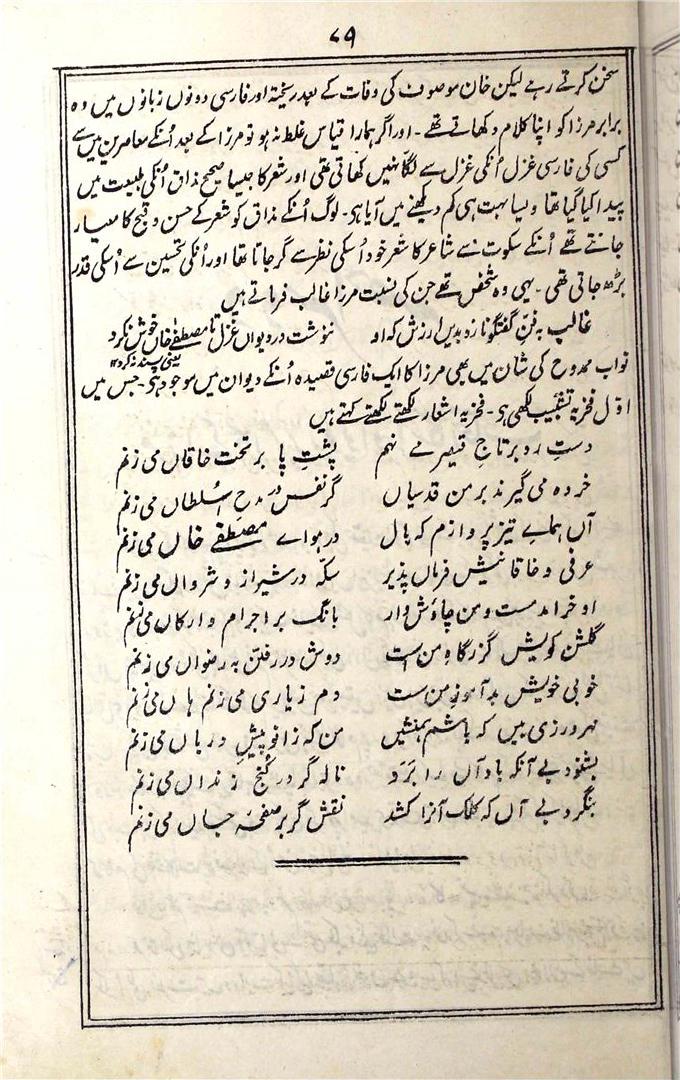 ۷۹
سخن کرتے رہے لیکن خان موصوف کی وفات کے بعد ریختہ اور فارسی دونوں زبانوں میں وہ
برابر مرزا کو اپنا کلام دکھاتے تھے۔ اور اگر ہمارا قیاس غلط نہ ہو تو مرزا کے بعد اُنکے معاصرین میں سے
کسی کی فارسی غزل اُنکی غزل سے لگّا نہیں کھاتی تھی اور شعر کا جیسا صحیح مذاق اُنکی طبیعت میں
پیدا کیا گیا تھا ویسا بہت ہی کم دیکھنے میں آیا ہی۔ لوگ اُنکے مذاق کو شعر کے حسن و قبح کا معیار
جانتے تھے اُنکے سکوت سے شاعر کا شعر خود اُسکی نظر سے گر جاتا تھا اور اُنکی تحسین سے اُسکی قدر
بڑھ جاتی تھی۔ یہی وہ شخص تھے جن کی نسبت مرزا غالب فرماتے ہیں
غالب بہ فنِّ گفتگو نازد بدیں ارزش کہ او ننوشت در دیواں غزل تا مصطفےٰ خاں خوش نکرد
یعنی پسند نہ کرد ۱۲
نواب ممدوح کی شان میں بھی مرزا کا ایک فارسی قصیدہ اُنکے دیوان میں موجود ہی۔ جس میں
اوّل فخریہ تشبیب لکھی ہی۔ فخریہ اشعار لکھتے لکھتے کہتے ہیں
دستِ رد بر تاجِ قیصر مے نہم پشتِ پا بر تختِ خاقاں می زنم
خردہ می گیرند بر من قدسیاں گر نفس در مدحِ سُلطاں می زنم
آں ہماے تیز پروازم کہ بال در ہواے مصطفےٰ خاں می زنم
عرفی و خاقانیش فرماں پذیر سکّہ در شیراز و شرواں می زنم
او خرامد مست و من چاؤش وار بانگ بر اجرام و ارکاں می زنم
گلشنِ کویش گزرگاہِ من ست دوش در رفتن بہ رضواں می زنم
خوبیِ خویش بدآموزِ من ست دم ز یاری می زنم ہاں می زنم
مہرورزی بیں کہ باشم ہمنشیں من کہ زانو پیشِ درباں می زنم
بشنود بے آنکہ باد آں را بَرَد نالہ گر در کُنجِ زنداں می زنم
بنگرد بے آں کہ کلک آنرا کشد نقش گر بر صفحہ جاں می زنم